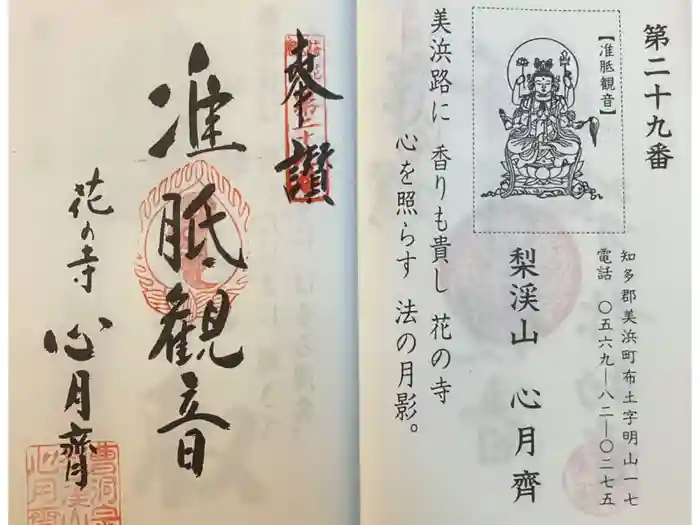 第二十九番
【准胝観音】
知多郡美浜町布土字明山一七
電話 〇五六九ー八二ー〇二七五
梨渓山 心月齊
美浜路に 香りも貴し 花の寺
心を照らす 法の月影。
奉讃
准胝観音
花の寺 心月齊